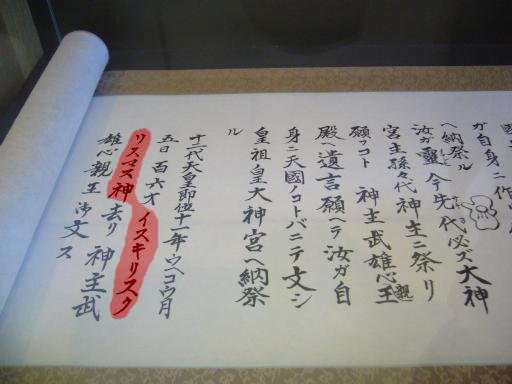 ガ自身ニ作
ヘ納祭ル
汝ガ靈今 代必ズ大神
宮主孫々代神主ニ祭リ
願フコト 神主武雄心親王
殿ヘ遺言願ヘテ汝ガ自
身ニ天國ノコトバニテ文シ
皇祖皇大神宮ヘ納祭
ル
十一代天皇即位十一年ウヘコウ月
五日 百六才 イスキリスク
リスマス神 去リ 神主武
雄心親王 御文ス